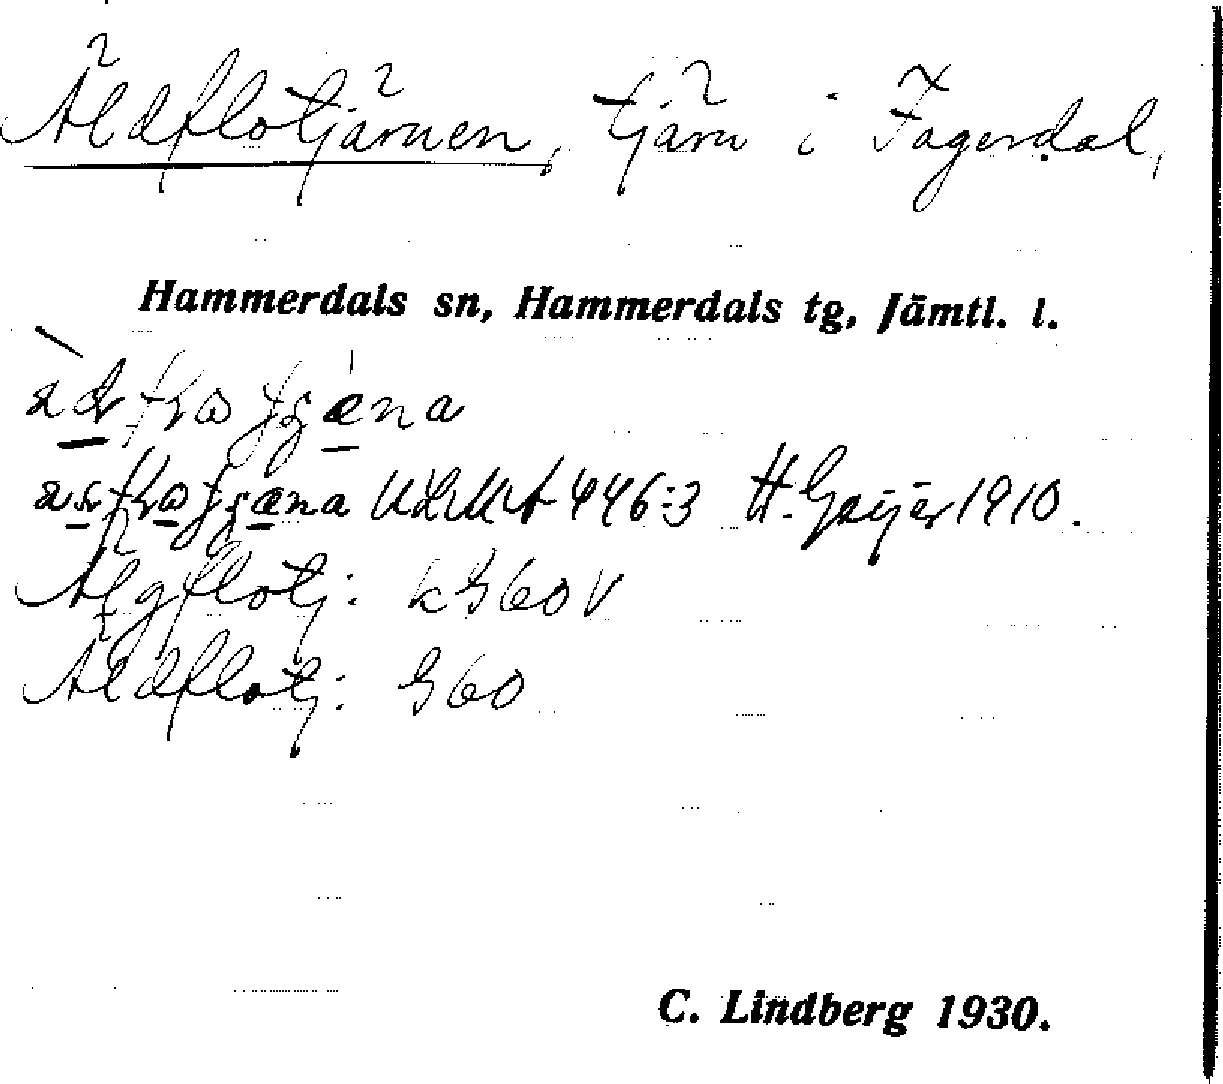 Äldflotjärnen, tjärn i Fagerdal,
Hammerdals sn, Hammerdals tg, Jämtl. l.
ULMA 446:3 H. Geijer 1910.
Älgflotj: k G60 V
Äldflotj: G60
C. Lindberg 1930.